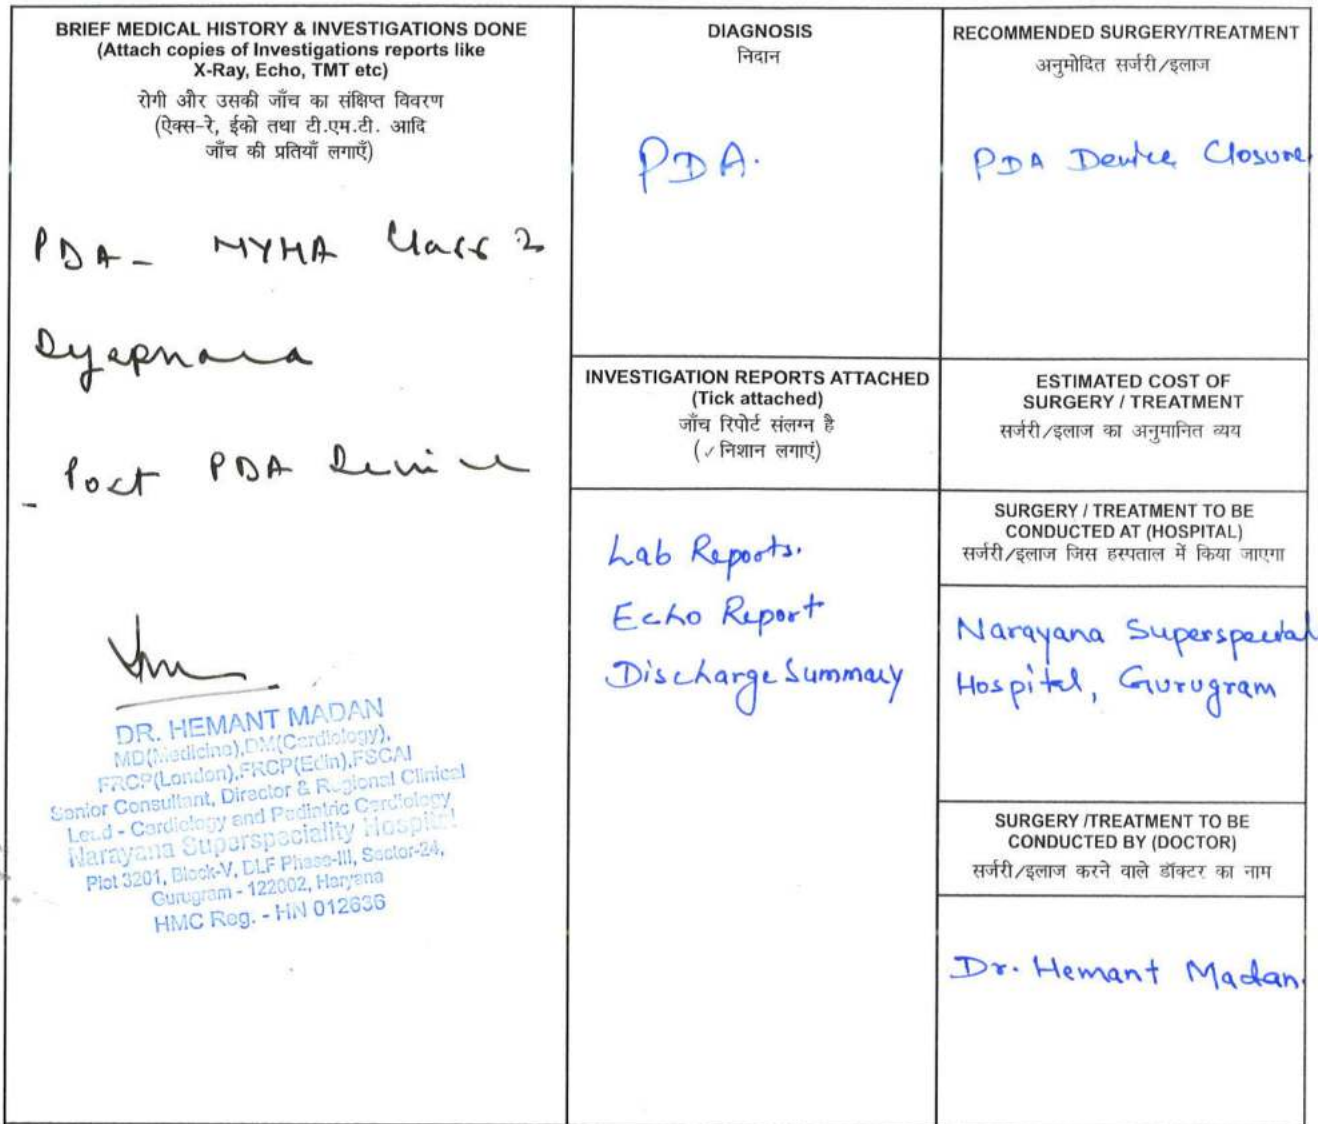 BRIEF MEDICAL HISTORY & INVESTIGATIONS DONE
(Attach copies of Investigations reports like
X-Ray, Echo, TMT etc)
रोगी और उसकी जाँच का संक्षिप्त विवरण
(ऐक्स-रे, ईको तथा टी.एम.टी. आदि
जाँच की प्रतियाँ लगाएँ)
PDA - NYHA Class 2
Dyspnoea
- Post PDA Device
DR. HEMANT MADAN
MD(Medicine),DM(Cardiology),
FRCP(London),FRCP(Edin),FSCAI
Senior Consultant, Director & Regional Clinical
Lead - Cardiology and Pediatric Cardiology
Narayana Superspeciality Hospital
Plot 3201, Block-V, DLF Phase-III, Sector-24,
Gurugram - 122002, Haryana
HMC Reg. - HN 012636
DIAGNOSIS
निदान
PDA.
INVESTIGATION REPORTS ATTACHED
(Tick attached)
जाँच रिपोर्ट संलग्न है
(✓ निशान लगाएं)
Lab Reports.
Echo Report
Discharge Summary
RECOMMENDED SURGERY/TREATMENT
अनुमोदित सर्जरी/इलाज
PDA Device Closure
ESTIMATED COST OF
SURGERY / TREATMENT
सर्जरी/इलाज का अनुमानित व्यय
SURGERY / TREATMENT TO BE
CONDUCTED AT (HOSPITAL)
सर्जरी/इलाज जिस हस्पताल में किया जाएगा
Narayana Superspecial
Hospital, Gurugram
SURGERY /TREATMENT TO BE
CONDUCTED BY (DOCTOR)
सर्जरी/इलाज करने वाले डॉक्टर का नाम
Dr. Hemant Madan.